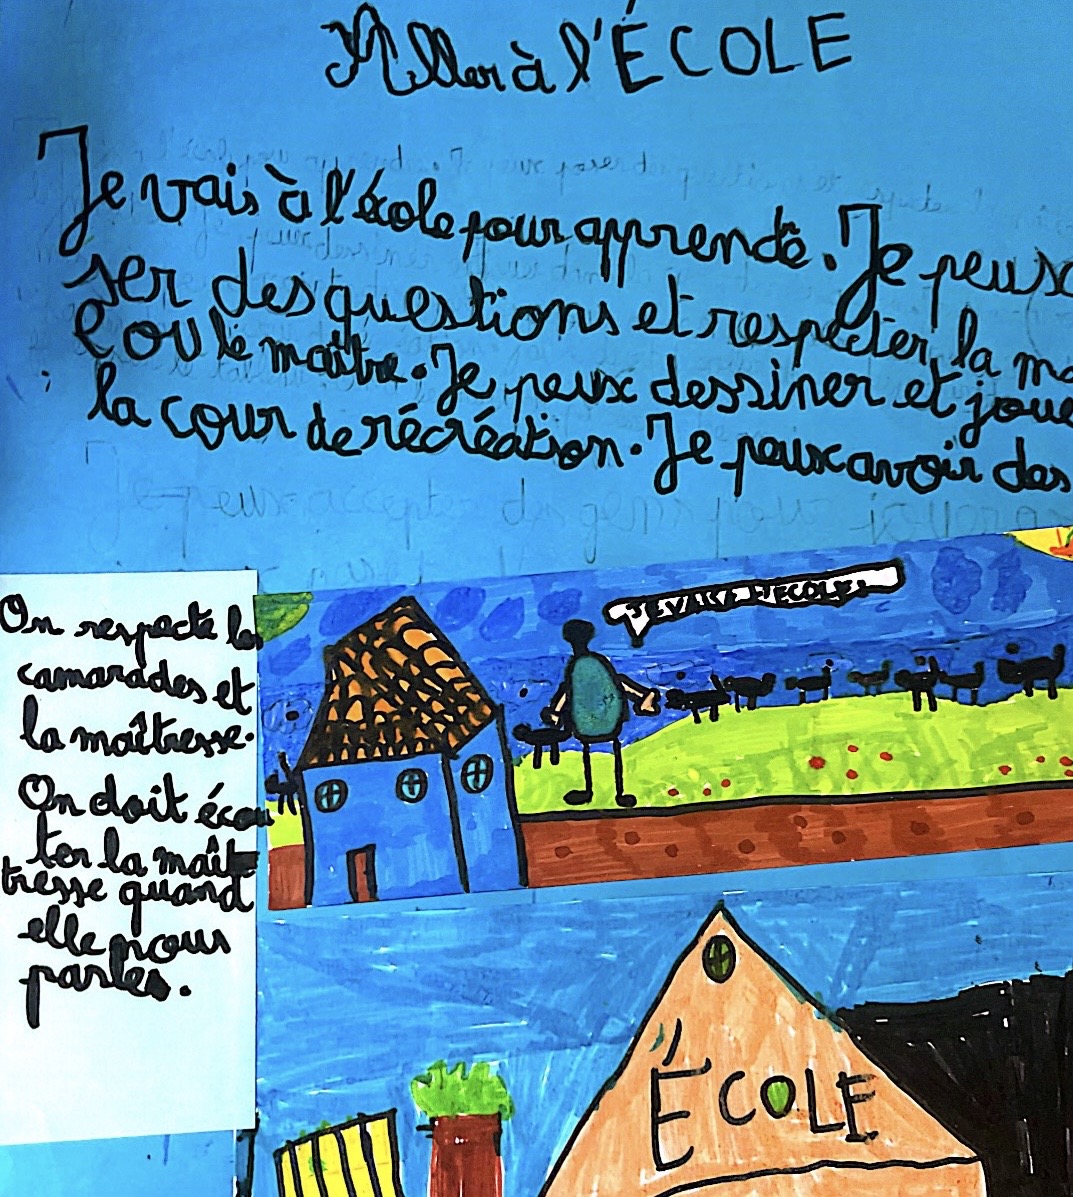 Aller à l'ÉCOLE
Je vais à l'école pour apprendre. Je peux
ser des questions et respecter la ma
e ou le maître. Je peux dessiner et joue
la cour de récréation. Je peux avoir des
On respecte les
camarades et
la maîtresse.
On doit écou
ter la maît
tresse quand
elle nous
parles.
ÉCOLE